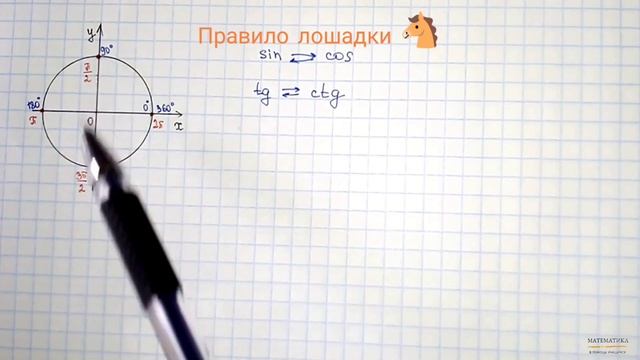 Правило лошадки
sin ⇄ cos
tg ⇄ ctg
y
90°
π/2
180°
0°
360°
π
0
2π
x
3π/2
МАТЕМАТИКА